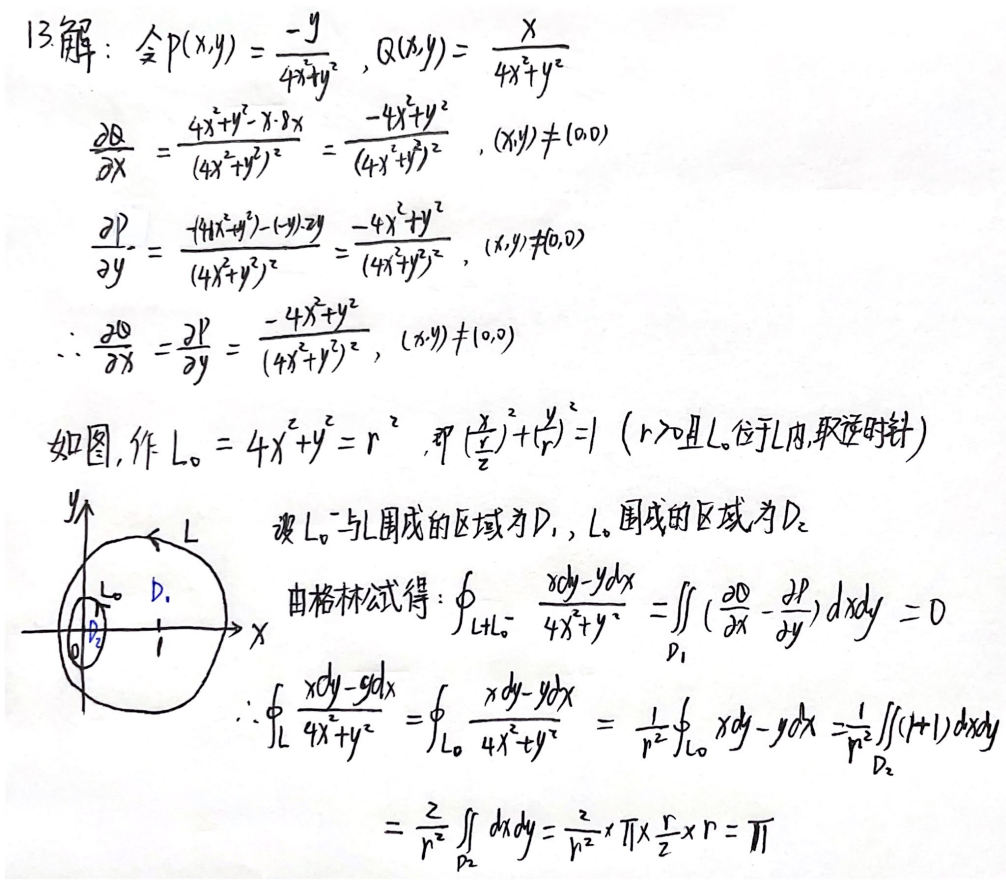 13.解：令P(x,y) = \frac{-y}{4x^2+y^2} , Q(x,y) = \frac{x}{4x^2+y^2}
\frac{∂Q}{∂x} = \frac{4x^2+y^2-x·8x}{(4x^2+y^2)^2} = \frac{-4x^2+y^2}{(4x^2+y^2)^2} , (x,y)≠(0,0)
\frac{∂P}{∂y} = \frac{-(4x^2+y^2)-(-y)·2y}{(4x^2+y^2)^2} = \frac{-4x^2+y^2}{(4x^2+y^2)^2} , (x,y)≠(0,0)
∴ \frac{∂Q}{∂x} = \frac{∂P}{∂y} = \frac{-4x^2+y^2}{(4x^2+y^2)^2} , (x,y)≠(0,0)
如图,作 L_0 = 4x^2+y^2=r^2 ,即 (\frac{x}{\frac{r}{2}})^2+(\frac{y}{r})^2=1 (r>0且L_0位于L内,取逆时针)
y
L
L_0
D_1
D_2
0
1
x
设 L_0^-与L围成的区域为D_1, L_0围成的区域为D_2
由格林公式得: ∮_{L+L_0^-} \frac{xdy-ydx}{4x^2+y^2} = ∬_{D_1} (\frac{∂Q}{∂x} - \frac{∂P}{∂y}) dxdy = 0
∴ ∮_L \frac{xdy-ydx}{4x^2+y^2} = ∮_{L_0} \frac{xdy-ydx}{4x^2+y^2} = \frac{1}{r^2} ∮_{L_0} xdy-ydx = \frac{1}{r^2} ∬_{D_2} (1+1) dxdy
= \frac{2}{r^2} ∬_{D_2} dxdy = \frac{2}{r^2} × π × \frac{r}{2} × r = π